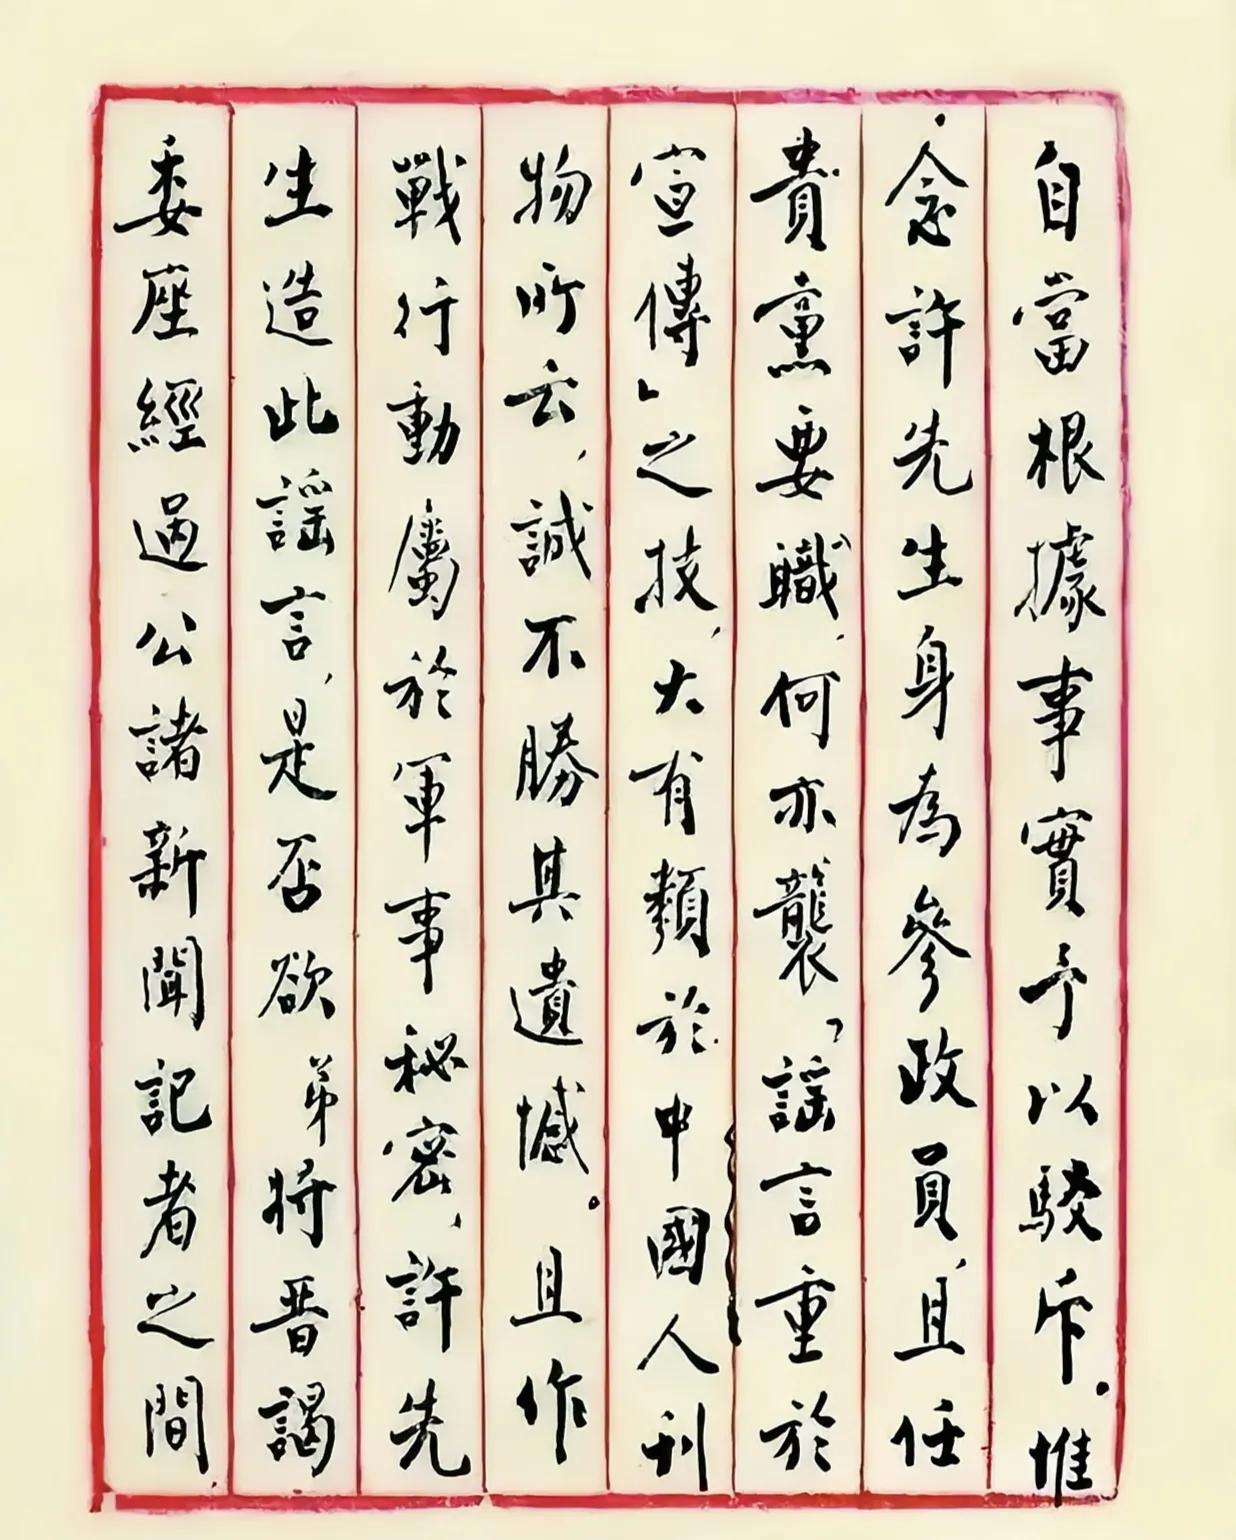 自當根據事實予以駁斥。惟
念許先生身為參政員、且任
貴黨要職、何亦襲「謠言重於
宣傳」之技、大有類於中國人刊
物所云、誠不勝其遺憾。且作
戰行動屬於軍事秘密、許先
生造此謠言、是否欲弟將晋謁
委座經過公諸新聞記者之間